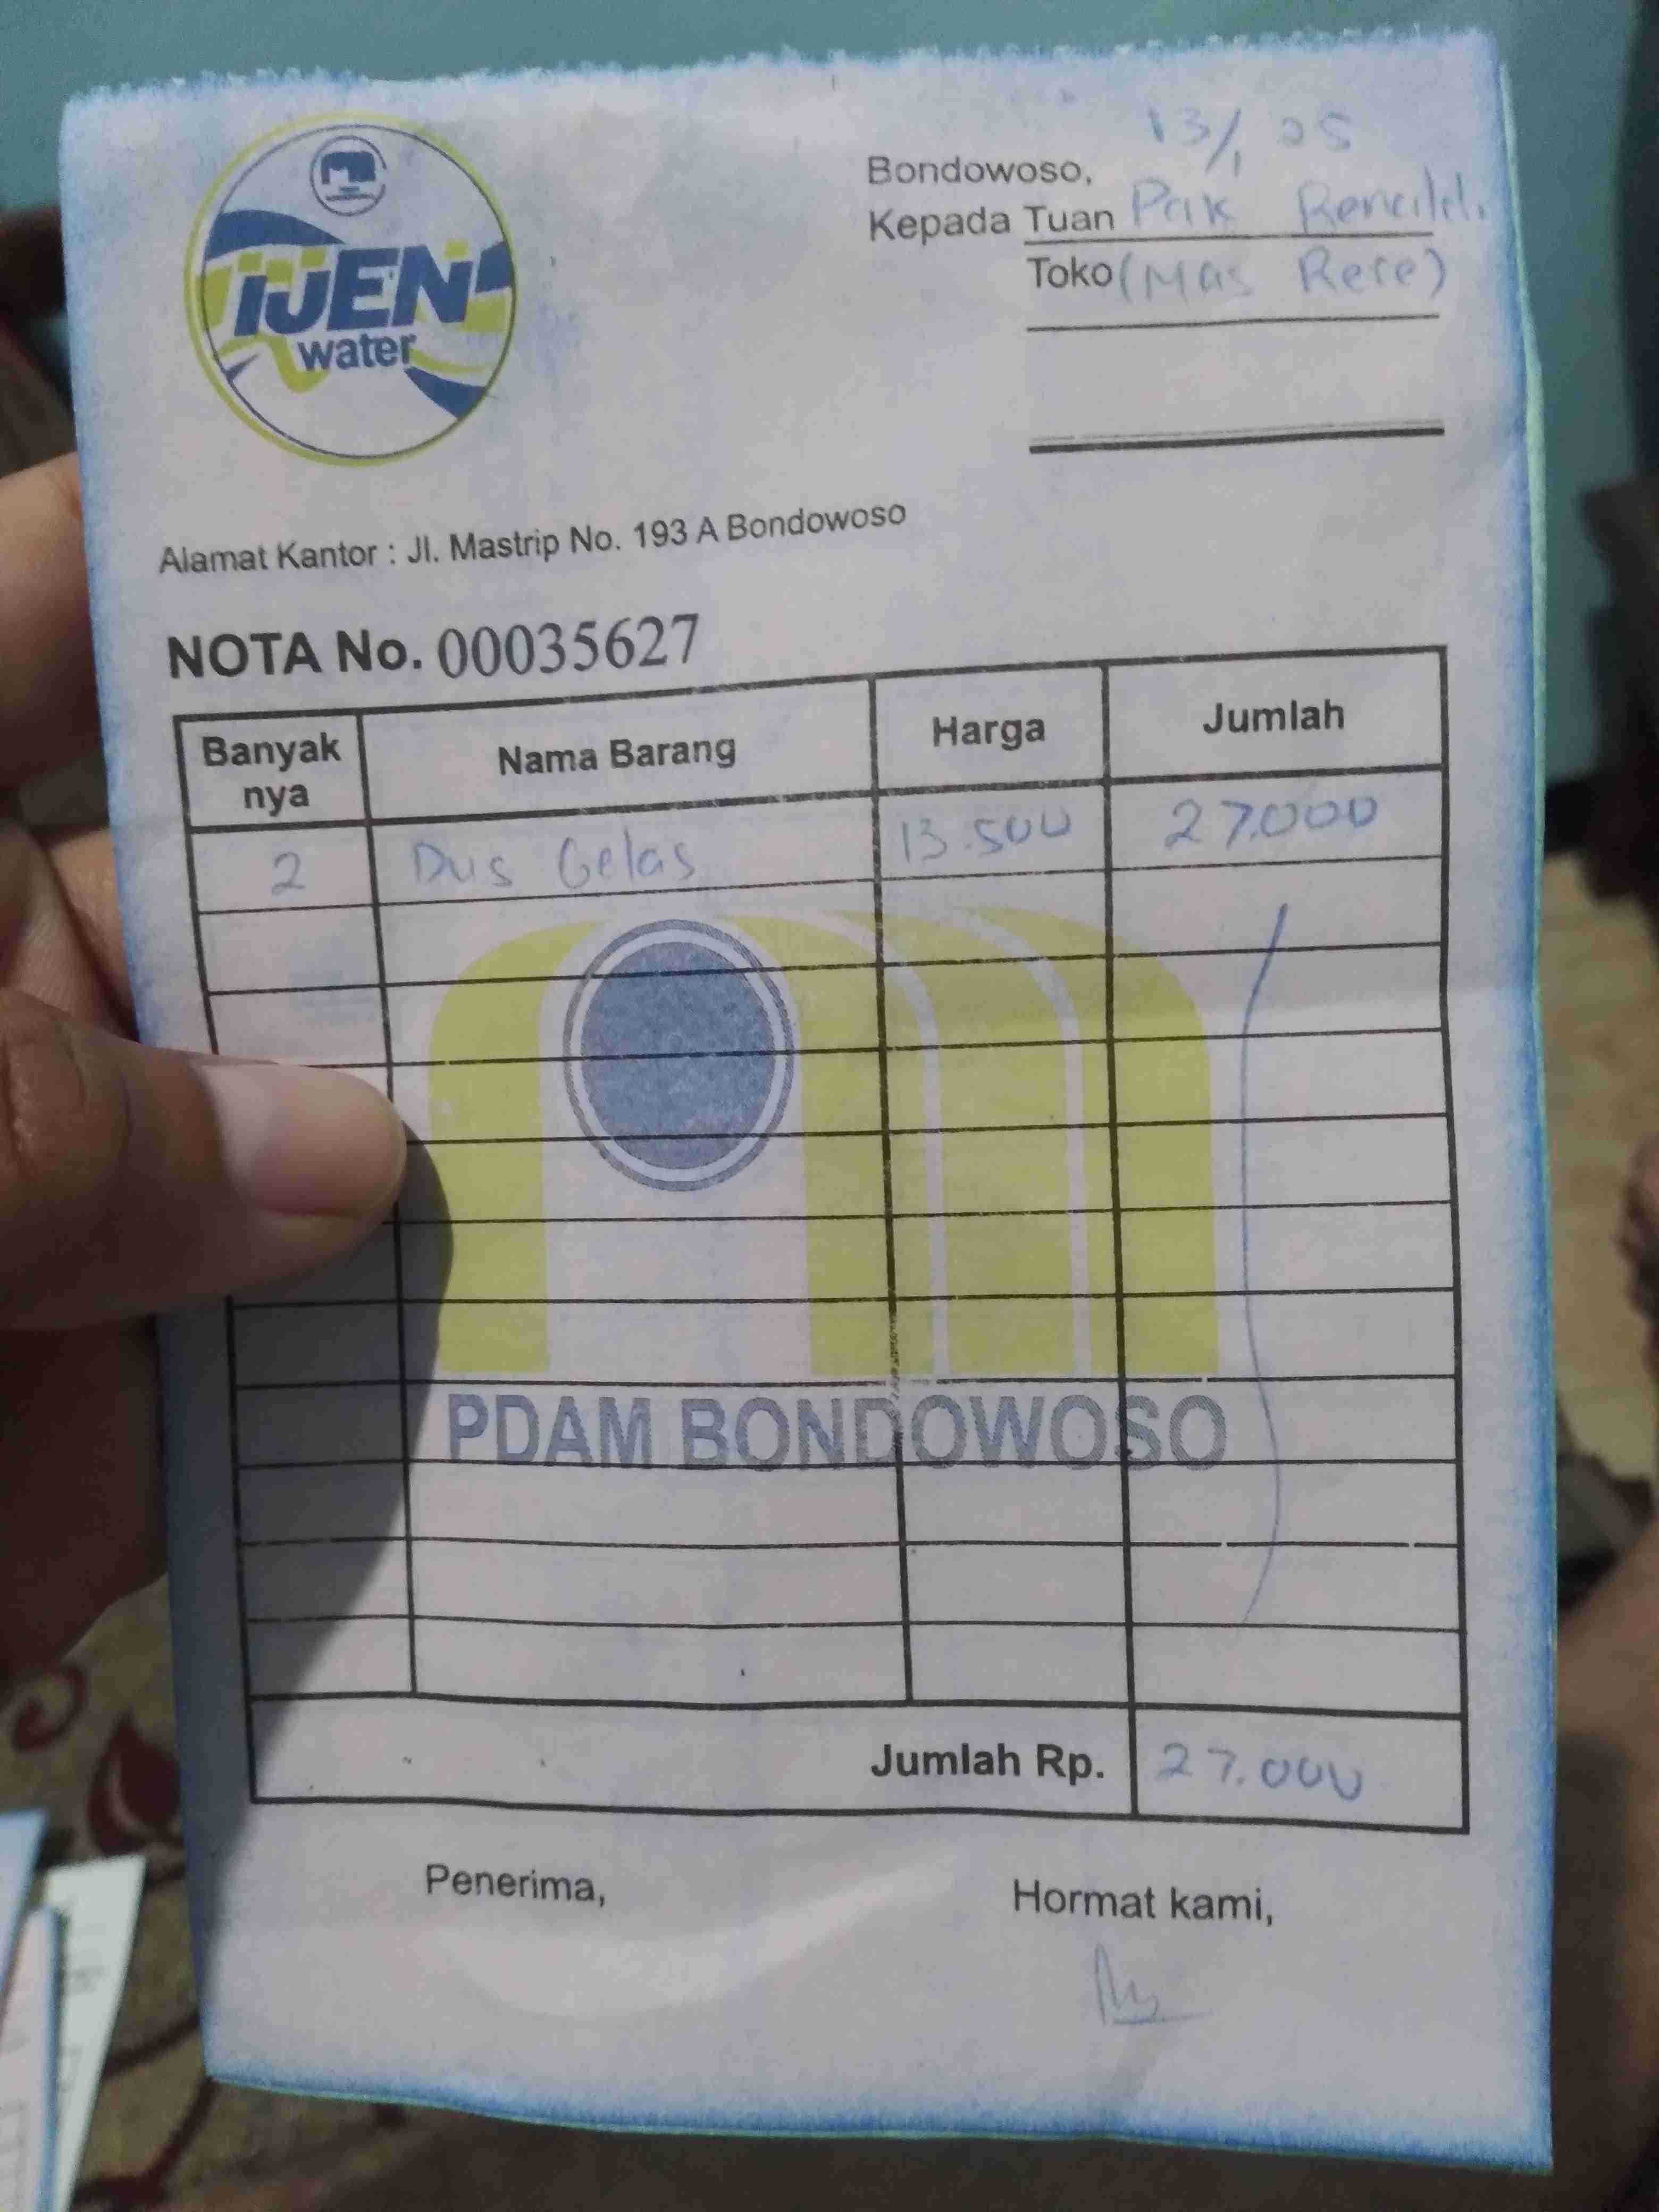 iJEN
water
Bondowoso, 13/1 25
Kepada Tuan Pak
Toko (Mas Rere)
Alamat Kantor : Jl. Mastrip No. 193 A Bondowoso
NOTA No. 00035627
Banyak nya Nama Barang Harga Jumlah
2 Dus Gelas 13.500 27.000
PDAM BONDOWOSO
Jumlah Rp. 27.000
Penerima, Hormat kami,